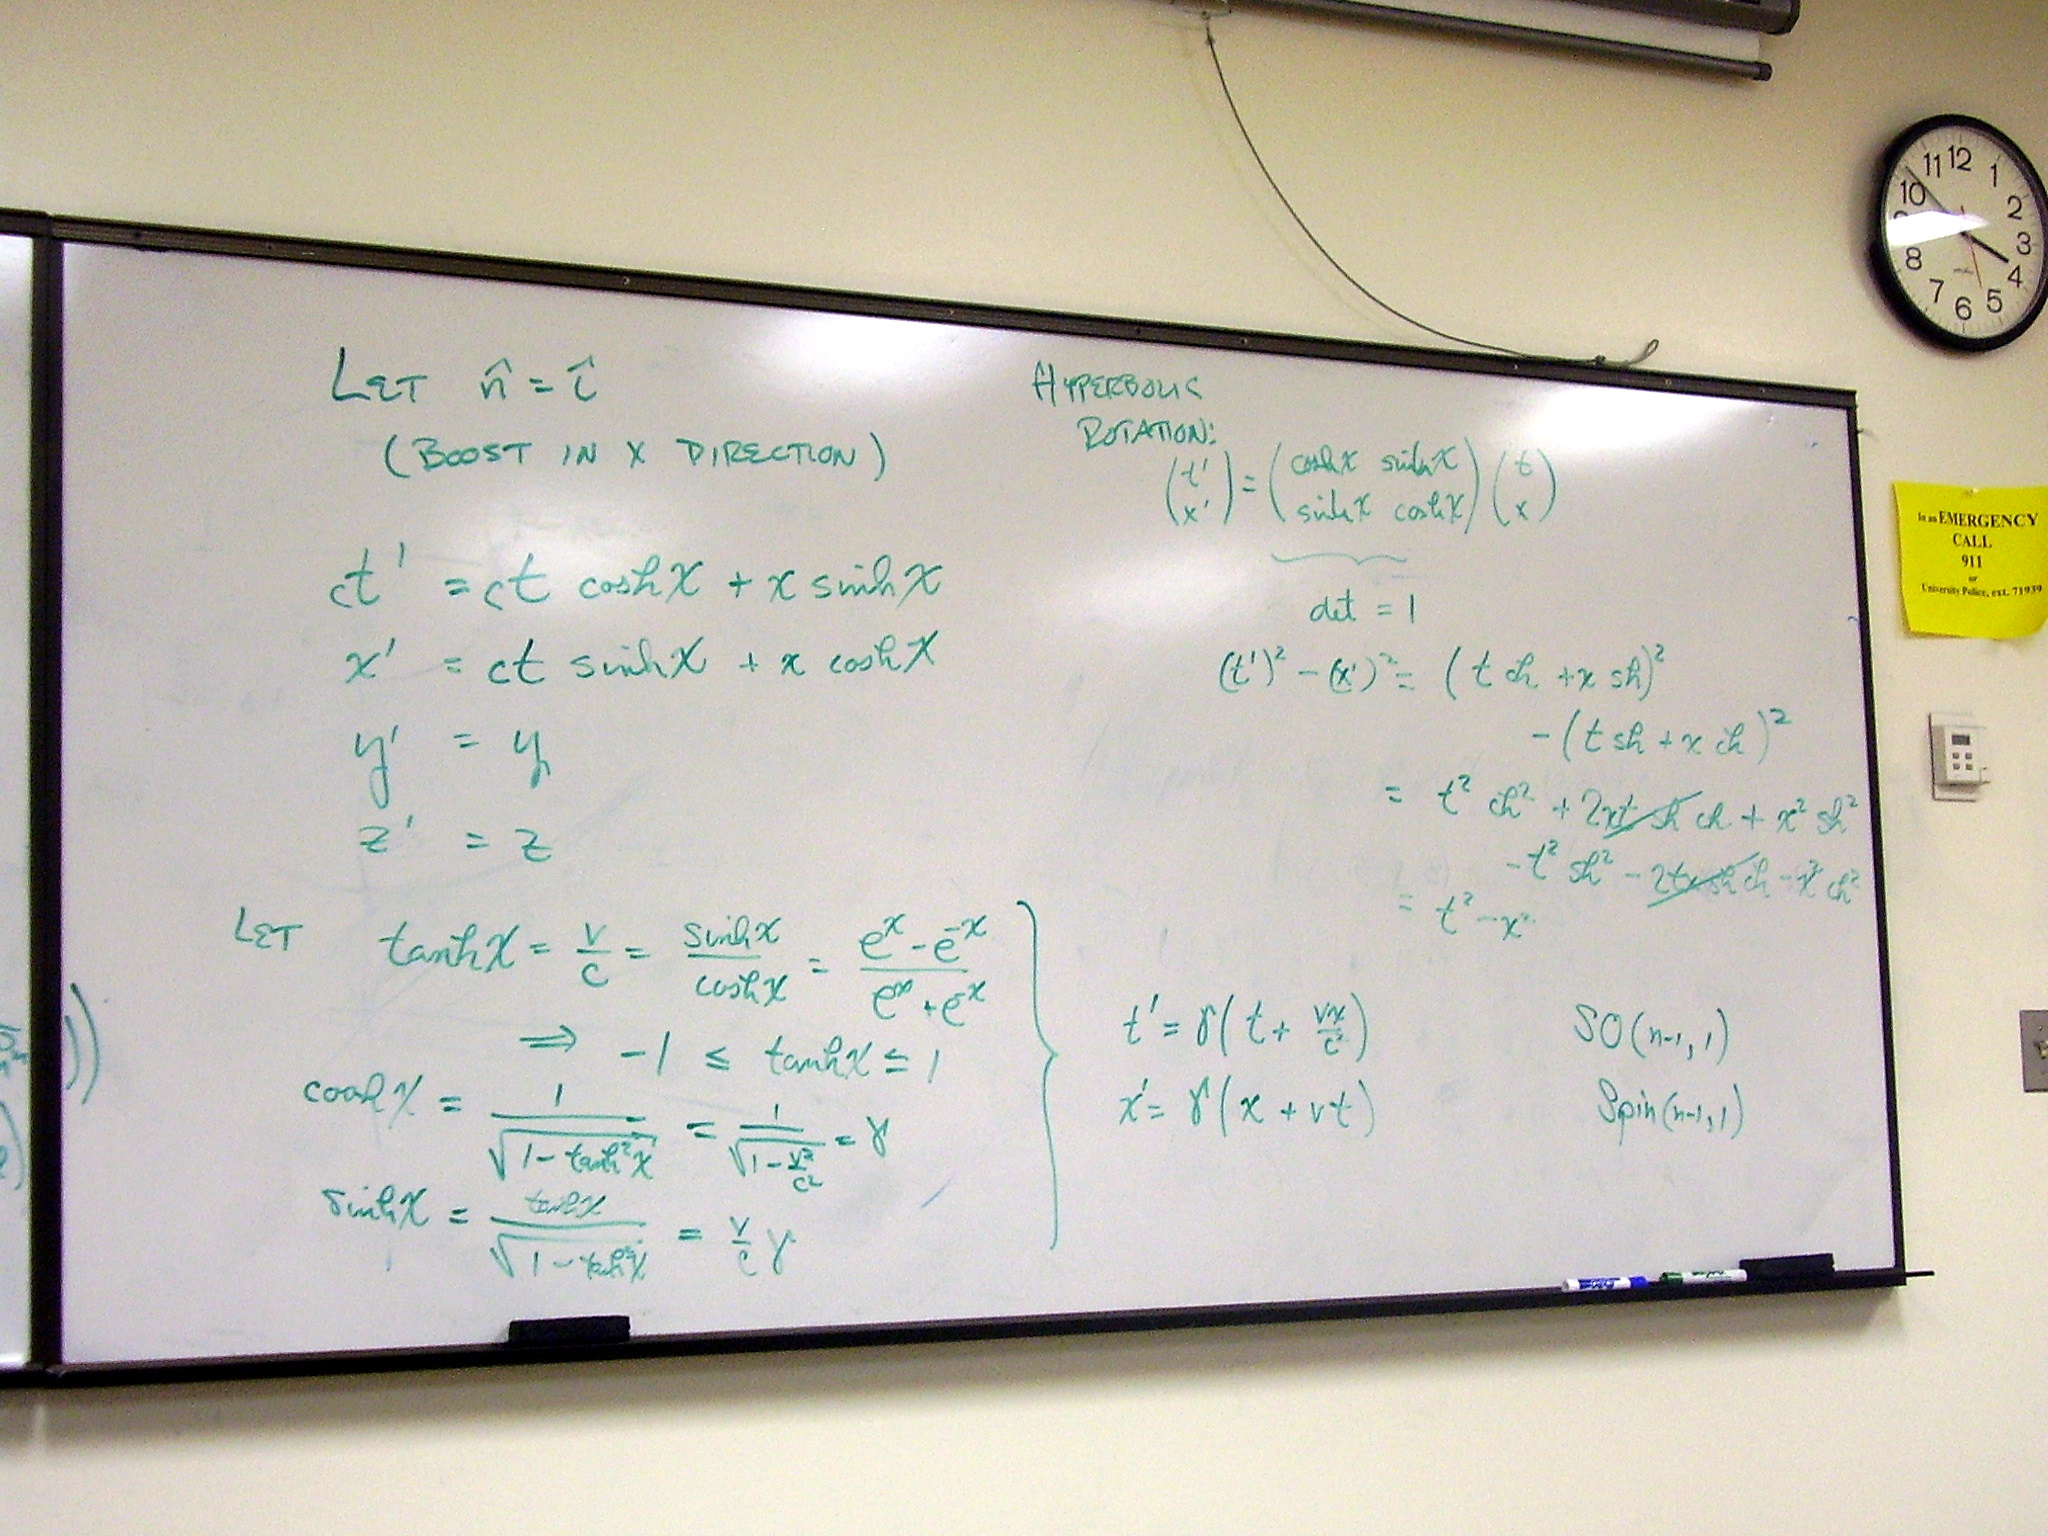 LET n̂ = î
(BOOST IN X DIRECTION)
ct' = ct coshχ + x sinhχ
x' = ct sinhχ + x coshχ
y' = y
z' = z
LET tanhχ = v/c = sinhχ/coshχ = (e^χ - e^-χ)/(e^χ + e^-χ)
⇒ -1 ≤ tanhχ ≤ 1
coshχ = 1/√(1-tanh²χ) = 1/√(1-v²/c²) = γ
sinhχ = tanhχ/√(1-tanh²χ) = v/c γ
HYPERBOLIC
ROTATION:
(t' x') = (coshχ sinhχ sinhχ coshχ)(t x)
det = 1
(t')² - (x')² = (t ch + x sh)²
-(t sh + x ch)²
= t² ch² + 2xt sh ch + x² sh²
-t² sh² - 2tx sh ch - x² ch²
= t² - x²
t' = γ(t + vx/c²)
x' = γ(x + vt)
SO(n-1,1)
Spin(n-1,1)
11 12 1
10 2
3
8 4
7 6 5
In an EMERGENCY
CALL
911
or
University Police, ext. 71939